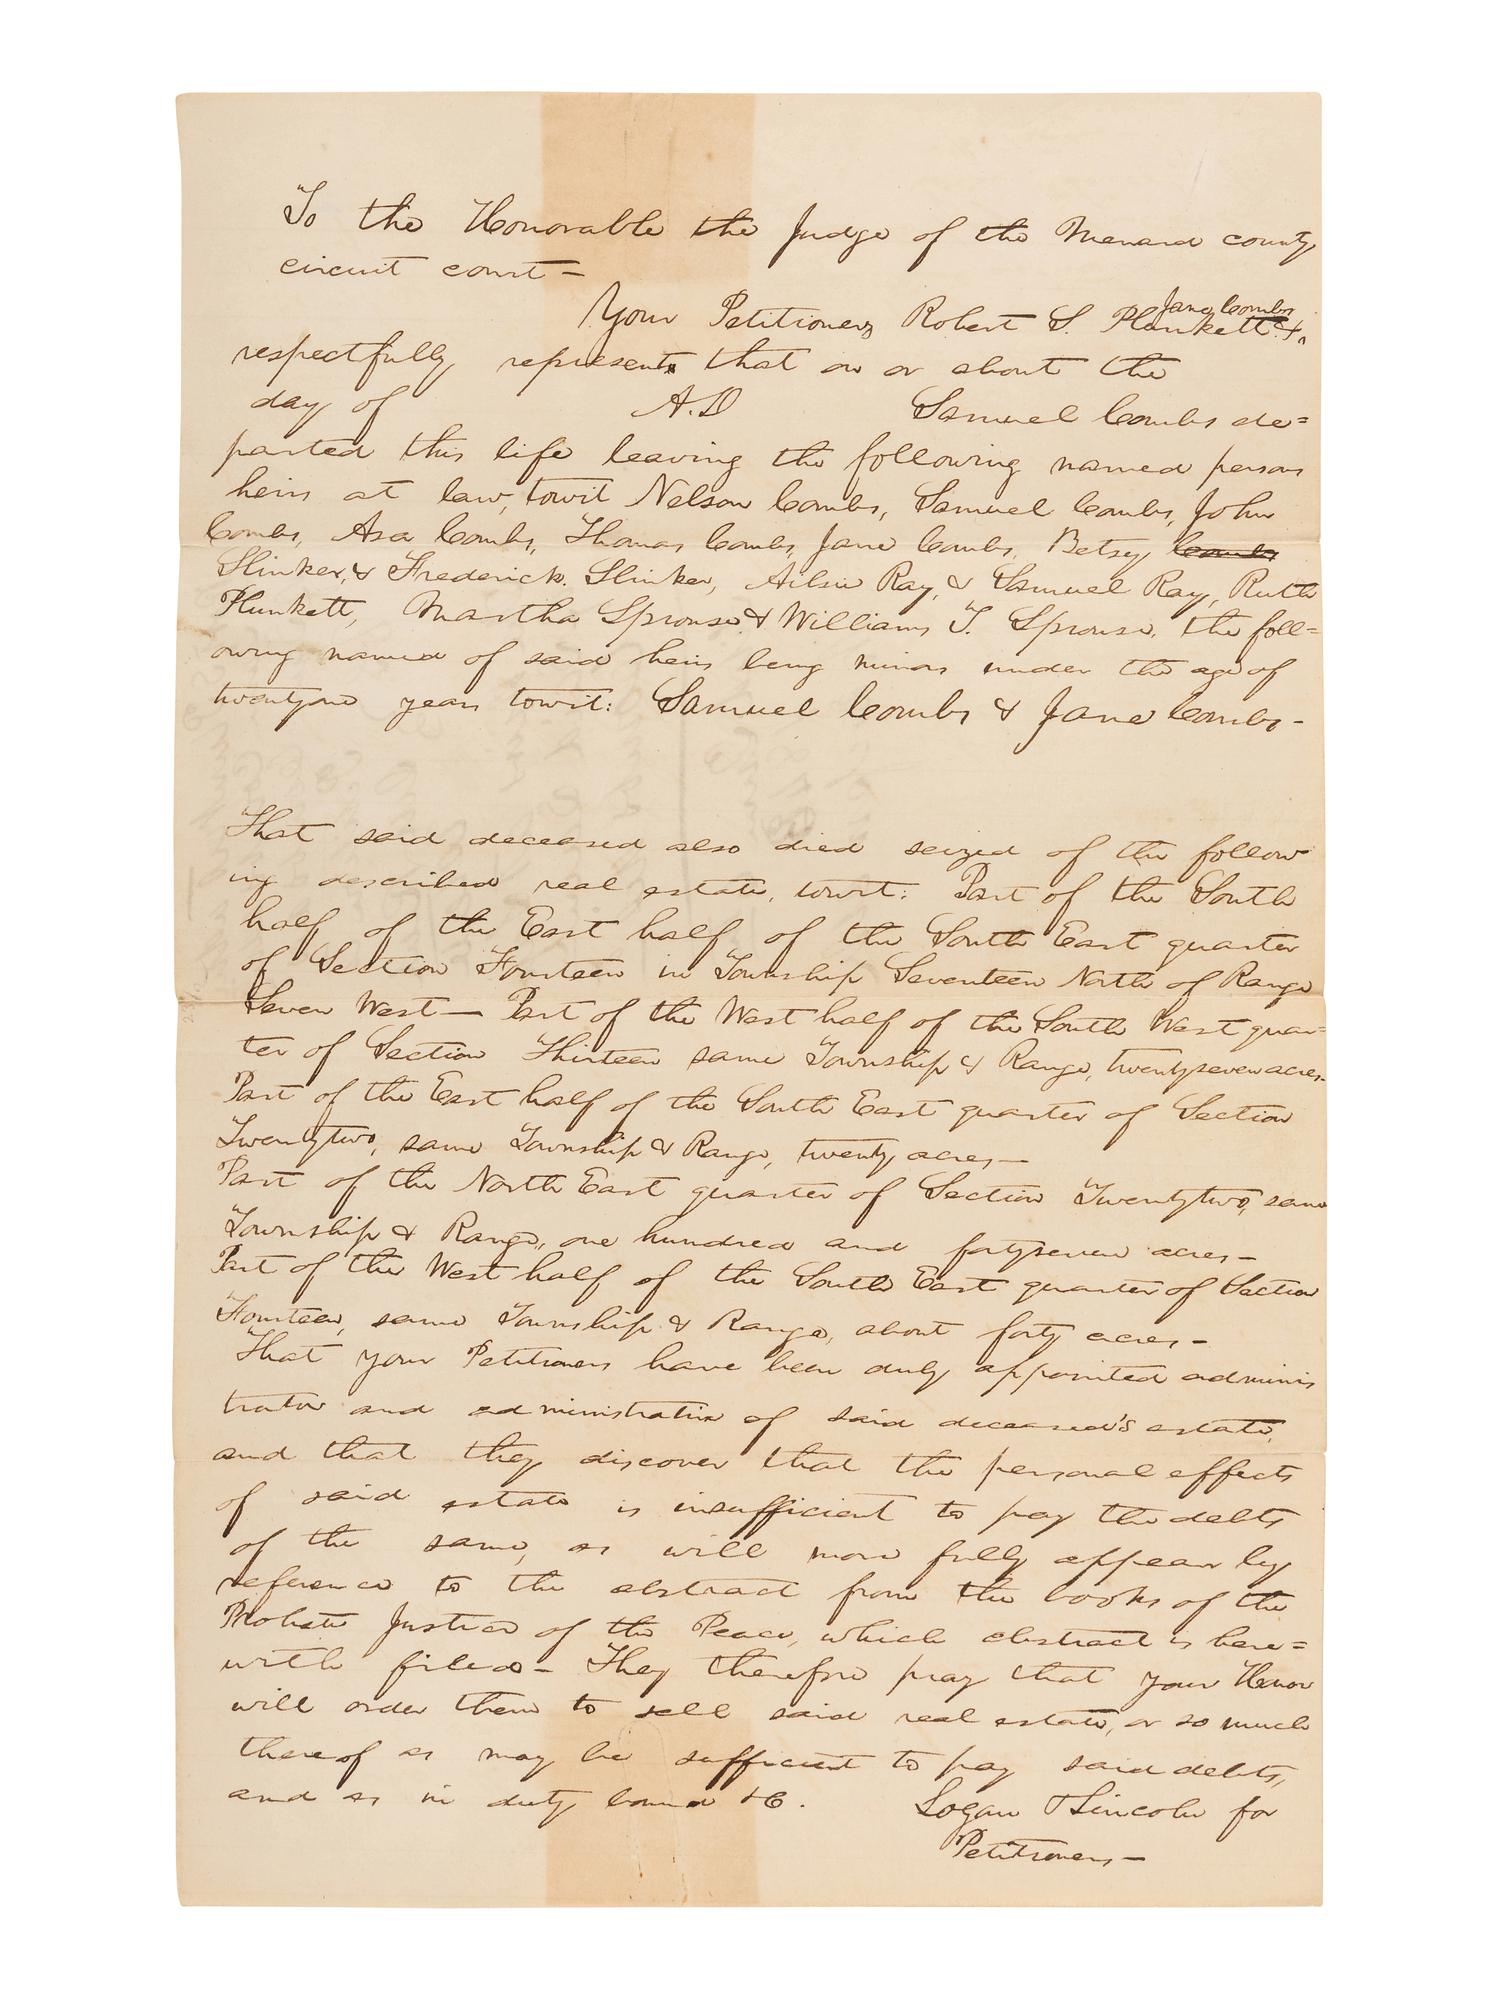 To the Honorable the Judge of the Menard county
circuit court –
Jane Combs
Your Petitioners Robert S. Plunkett &
respectfully represents that on or about the
day of A.D Samuel Combs de=
parted this life leaving the following named persons
heirs at law, towit Nelson Combs, Samuel Combs, John
Combs, Asa Combs, Thomas Combs, Jane Combs, Betsy Combs
Slinker, & Frederick Slinker, Ailsie Ray, & Samuel Ray, Ruth
Plunkett, Martha Sprouse & William T. Sprouse, the foll=
owing named of said heirs being minors under the age of
twentyone years towit: Samuel Combs & Jane Combs –
That said deceased also died seized of the follow
ing described real estate, towit: Part of the South
half of the East half of the South East quarter
of Section Fourteen in Township Seventeen North of Range
Seven West — Part of the West half of the South West quar=
ter of Section Thirteen same Township & Range, twentyseven acres–
Part of the East half of the South East quarter of Section
Twentytwo, same Township & Range, twenty acres —
Part of the North East quarter of Section Twentytwo, same
Township & Range, one hundred and fortyseven acres –
Part of the West half of the South East quarter of Section
Fourteen, same Township & Range, about forty acres, –
That your Petitioners have been duly appointed adminis
trator and administratrix of said deceased's estate,
and that they discover that the personal effects
of said estate is insufficient to pay the debts
of the same, as will more fully appear by
reference to the abstract from the books of the
Probate Justice of the Peace, which abstract is here=
with filed – They therefore pray that your Honor
will order them to sell said real estate, or so much
thereof as may be sufficient to pay said debts,
and as in duty bound &C. Logan & Lincoln for
Petitioners –